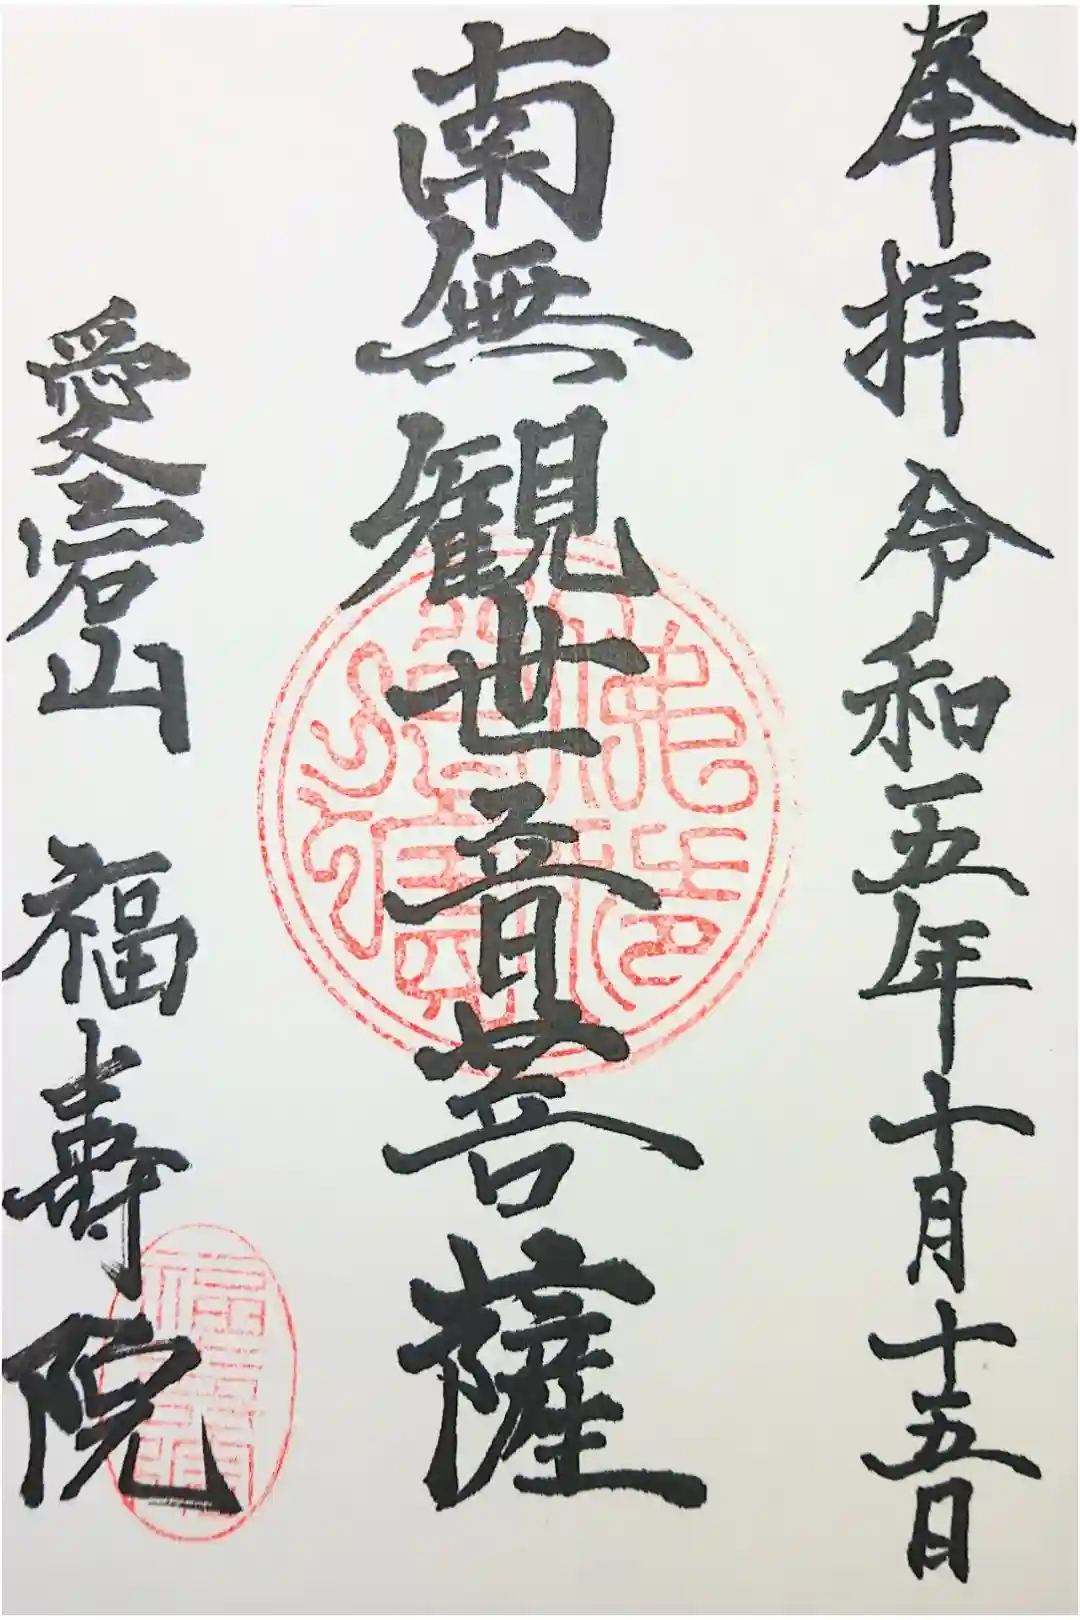 奉拝 令和五年十月十五日
南無観世音菩薩
愛宕山 福寿院
佛法僧寶